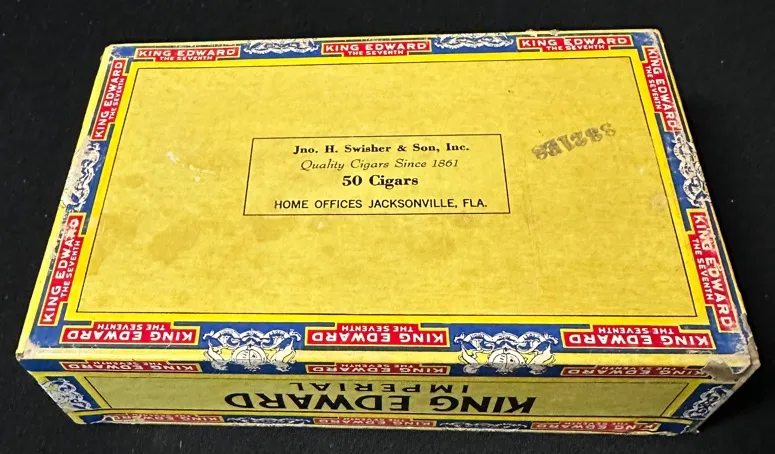 KING EDWARD
THE SEVENTH
KING EDWARD
THE SEVENTH
KING EDWARD
THE SEVENTH
KING EDWARD
THE SEVENTH
KING EDWARD
THE SEVENTH
Jno. H. Swisher & Son, Inc.
Quality Cigars Since 1861
50 Cigars
HOME OFFICES JACKSONVILLE, FLA.
KING EDWARD
THE SEVENTH
KING EDWARD
THE SEVENTH
KING EDWARD
THE SEVENTH
KING EDWARD
THE SEVENTH
KING EDWARD
THE SEVENTH
KING EDWARD
KING EDWARD
KING EDWARD
IMPERIAL
KING EDWARD